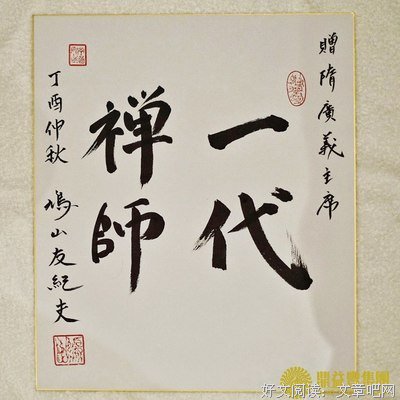 贈隋廣義主席
一代
禅師
丁酉仲秋 鳩山友紀夫
鼎益豐集團
好文阅读：文章吧网